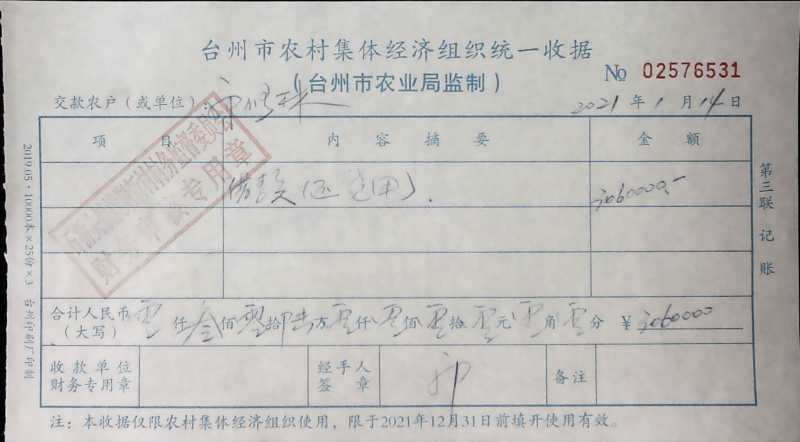 台州市农村集体经济组织统一收据
（台州市农业局监制）
№ 02576531
交款农户（或单位）：
2021年1月14日
项目 内容摘要 金额
3060000.-
合计人民币（大写） 零仟叁佰零拾陆万零仟零佰零拾零元零角零分 ￥3060000
收款单位 财务专用章 经手人签章 备注
注：本收据仅限农村集体经济组织使用，限于2021年12月31日前填开使用有效。
第三联 记账
2019.05·10000本×25份×3 台州印刷厂印制
财务审核专用章